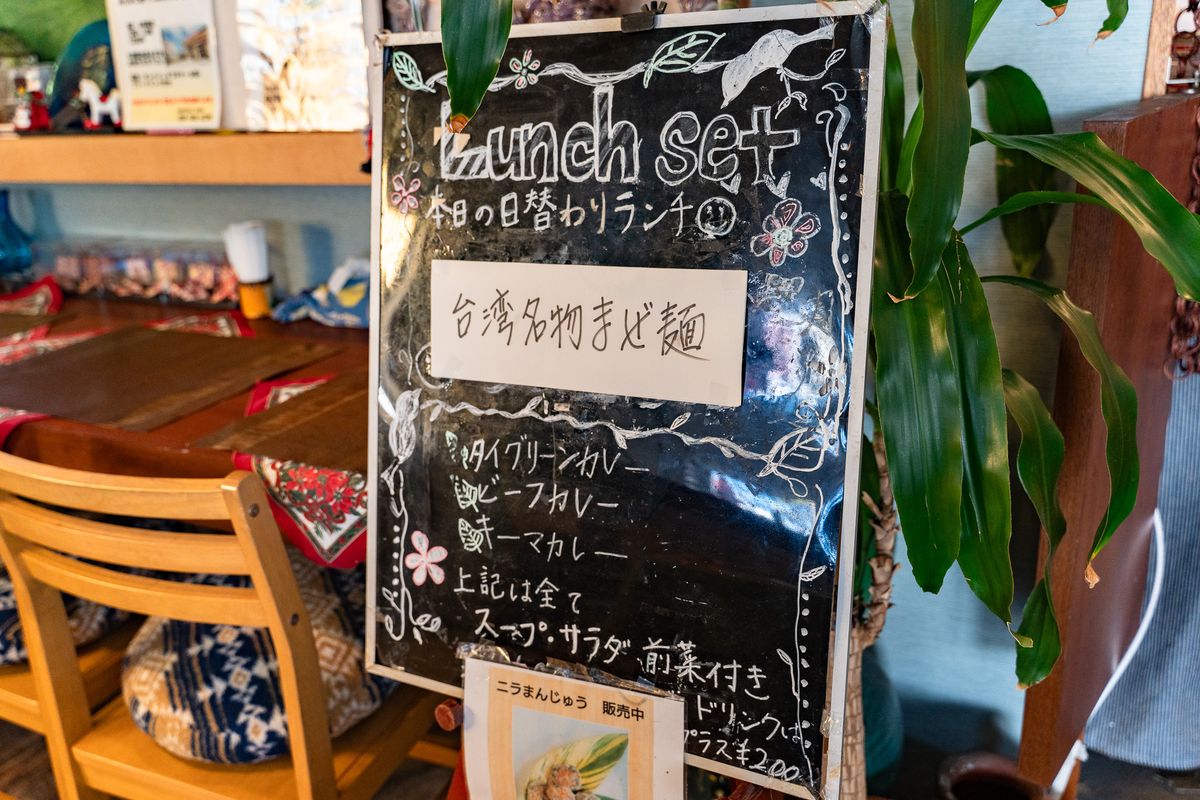 Lunch set
本日の日替わりランチ
台湾名物まぜ麺
タイグリーンカレー
ビーフカレー
キーマカレー
上記は全て
スープ・サラダ 前菜付き
ドリンクは
プラス¥200
ニラまんじゅう 販売中